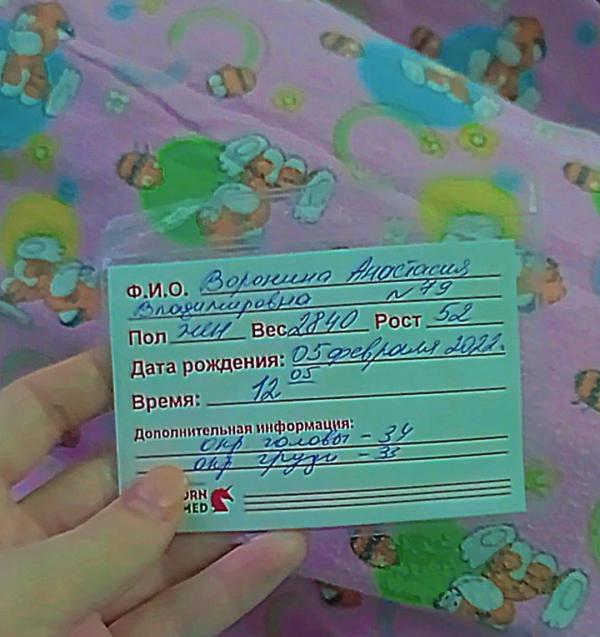 Ф.И.О. Воронина Анастасия
Владимировна N 79
Пол жен Вес 2840 Рост 52
Дата рождения: 05 февраля 2022г.
Время: 12 05
Дополнительная информация:
окр головы - 34
окр груди - 33
ORN
MED